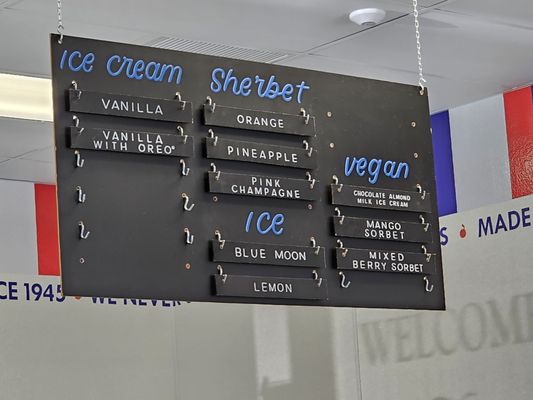 ice cream
VANILLA
VANILLA
WITH OREO®
Sherbet
ORANGE
PINEAPPLE
PINK
CHAMPAGNE
ice
BLUE MOON
LEMON
vegan
CHOCOLATE ALMOND
MILK ICE CREAM
MANGO
SORBET
MIXED
BERRY SORBET
CE 1945
WE NEVER
MADE
WELCOME